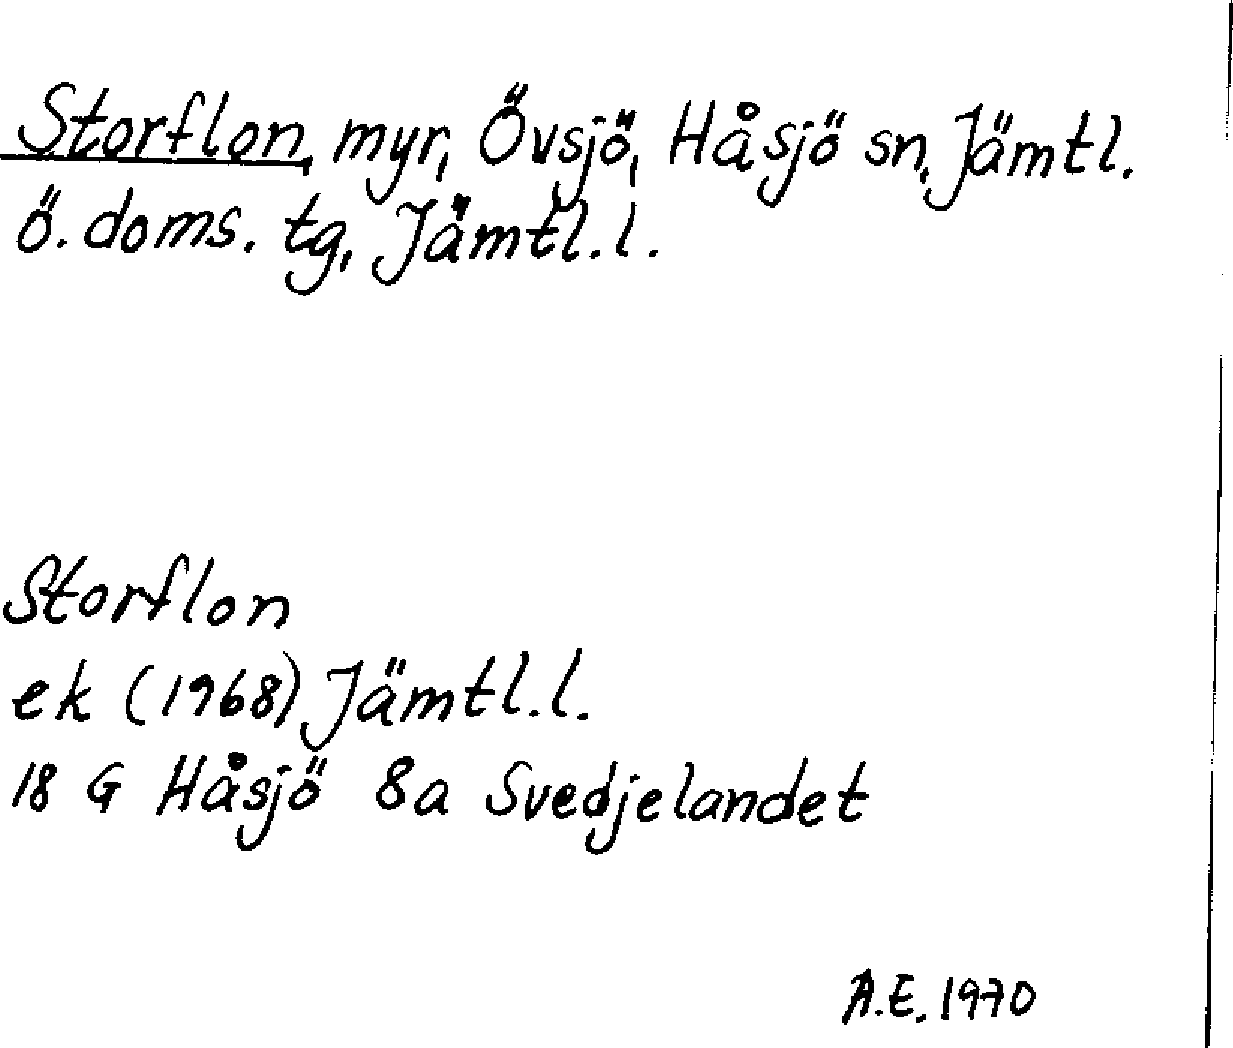 Storflon, myr, Övsjö, Håsjö sn, Jämtl.
ö. doms. tg, Jämtl. l.
Storflon
ek (1968) Jämtl. l.
18 G Håsjö 8a Svedjelandet
A.E. 1970